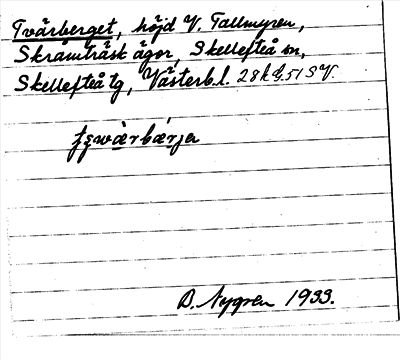 Tvärberget, höjd V. Tallmyren,
Skråmträsk ägor, Skellefteå sn,
Skellefteå tg, Västerb. l. 28 k g. 51 SV.
A. Nygren 1933.